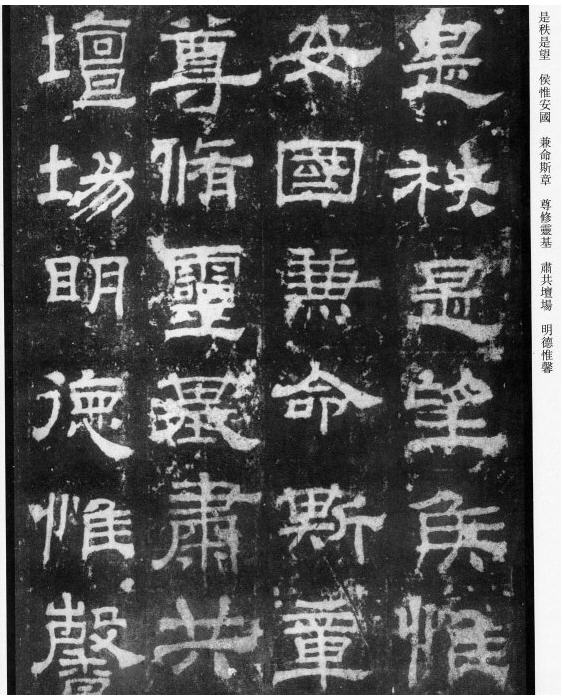 是秩是望侯惟
安國兼命斯章
尊脩靈基肅共
壇場明德惟馨
是秩是望 侯惟安國 兼命斯章 尊修靈基 肅共壇場 明德惟馨